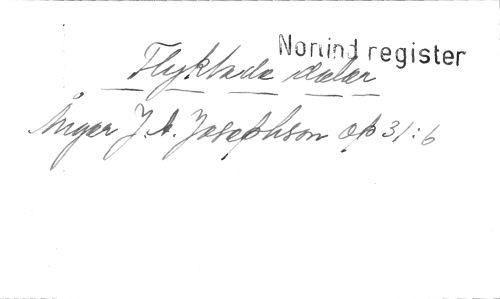 Norrind register
Flyktade dalar
Ånger J. A. Josephson op 31:6